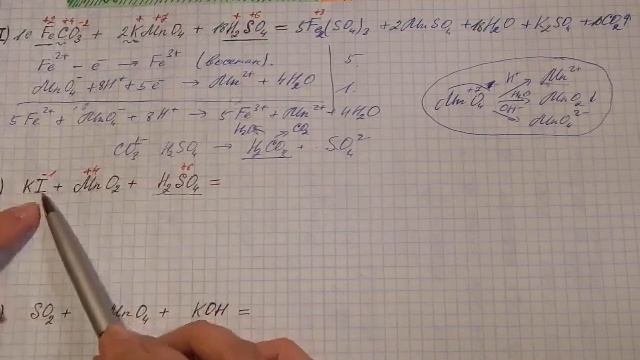 +2 +4 -2 + +7 + +6 +3
1) 10 FeCO₃ + 2KMnO₄ + H₂SO₄ = 5Fe₂(SO₄)₃ + 2MnSO₄ + H₂O + K₂SO₄ + 10CO₂↑
Fe²⁺ - e⁻ → Fe³⁺ (восстан.) 5
MnO₄⁻ + 8H⁺ + 5e⁻ → Mn²⁺ + 4H₂O 1
5Fe²⁺ + MnO₄⁻ + 8H⁺ → 5Fe³⁺ + Mn²⁺ + 4H₂O
H₂O CO₂
CO₃²⁻ H₂SO₄ → H₂CO₃ + SO₄²⁻
+7 MnO₄⁻ H⁺ Mn²⁺
H₂O MnO₂↓
OH⁻ MnO₄²⁻
-1 +4 +6
) KI + MnO₂ + H₂SO₄ =
) SO₂ + MnO₄ + KOH =